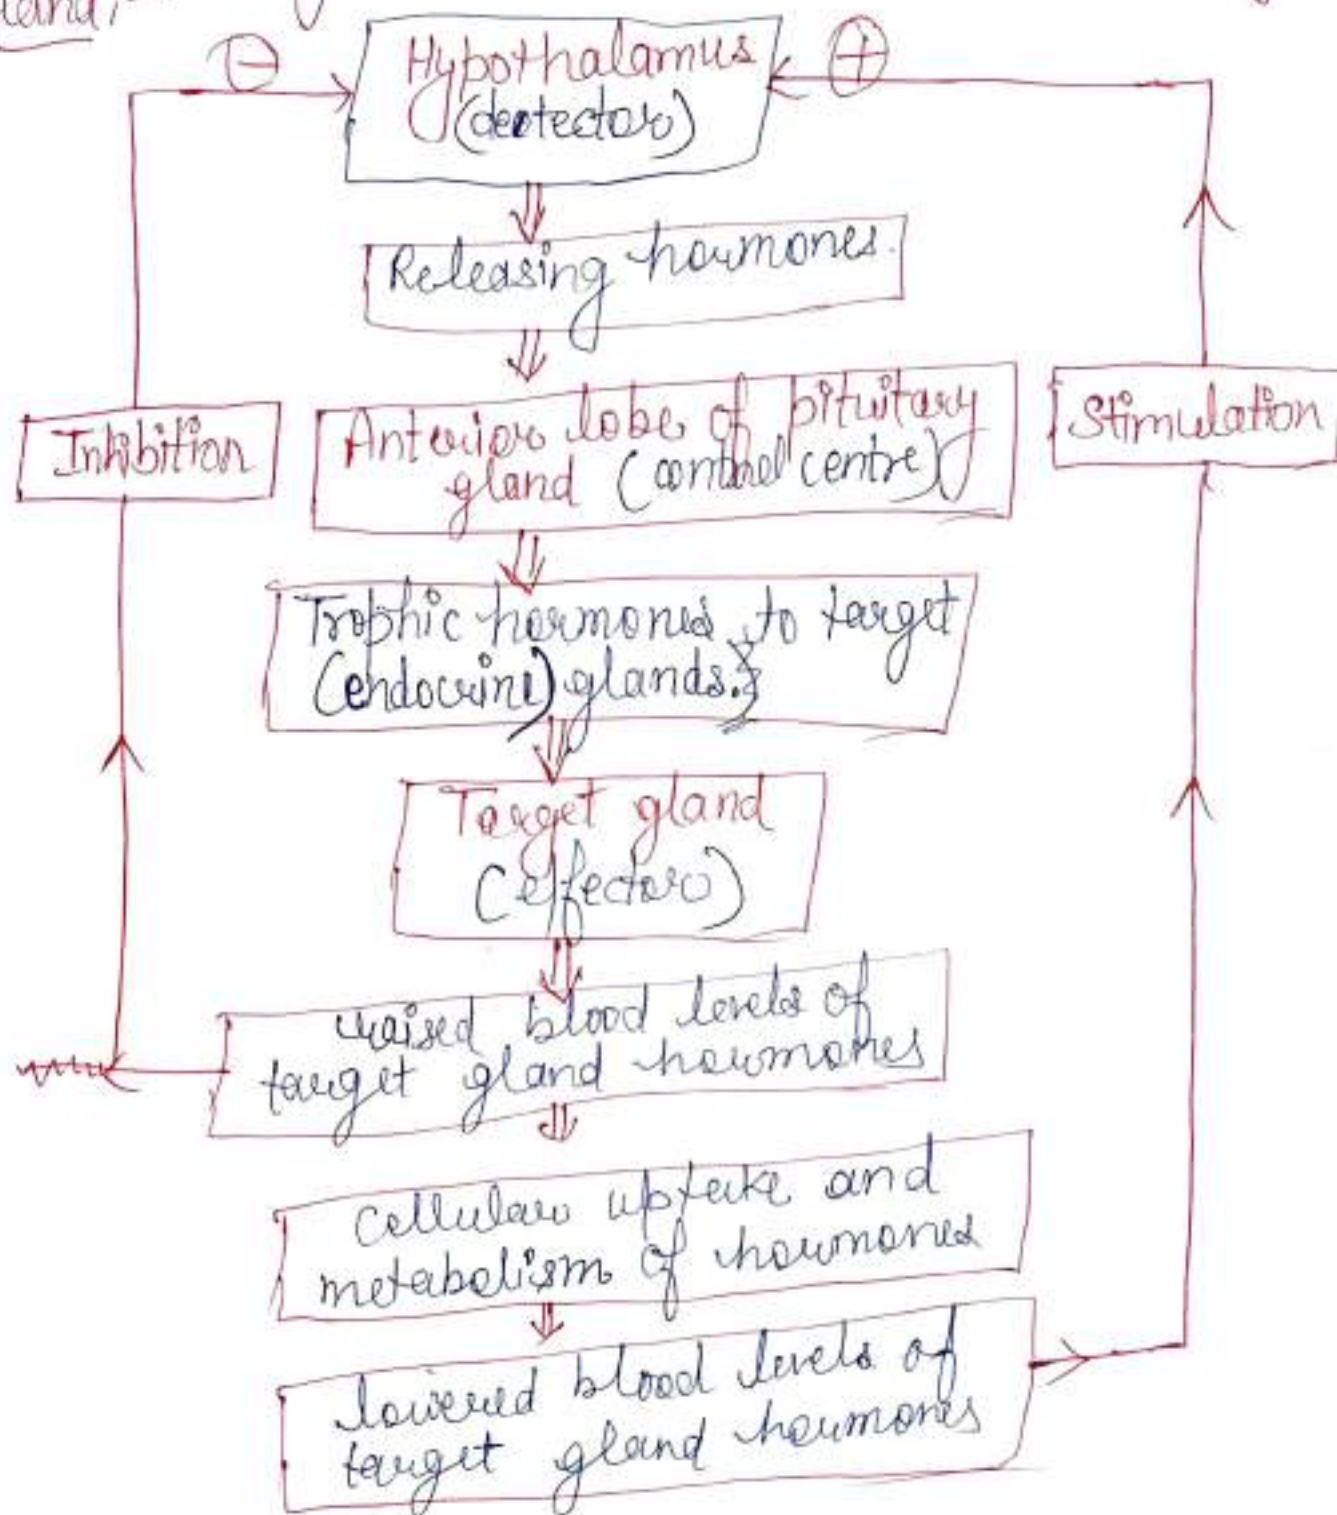 ⊖
⊕
Hypothalamus
(detector)
Releasing hormones.
Anterior lobe of pituitary
gland (control centre)
Inhibition
Stimulation
Trophic hormones to target
(endocrine) glands.}
Target gland
(effector)
raised blood levels of
target gland hormones
Cellular uptake and
metabolism of hormones
lowered blood levels of
target gland hormones